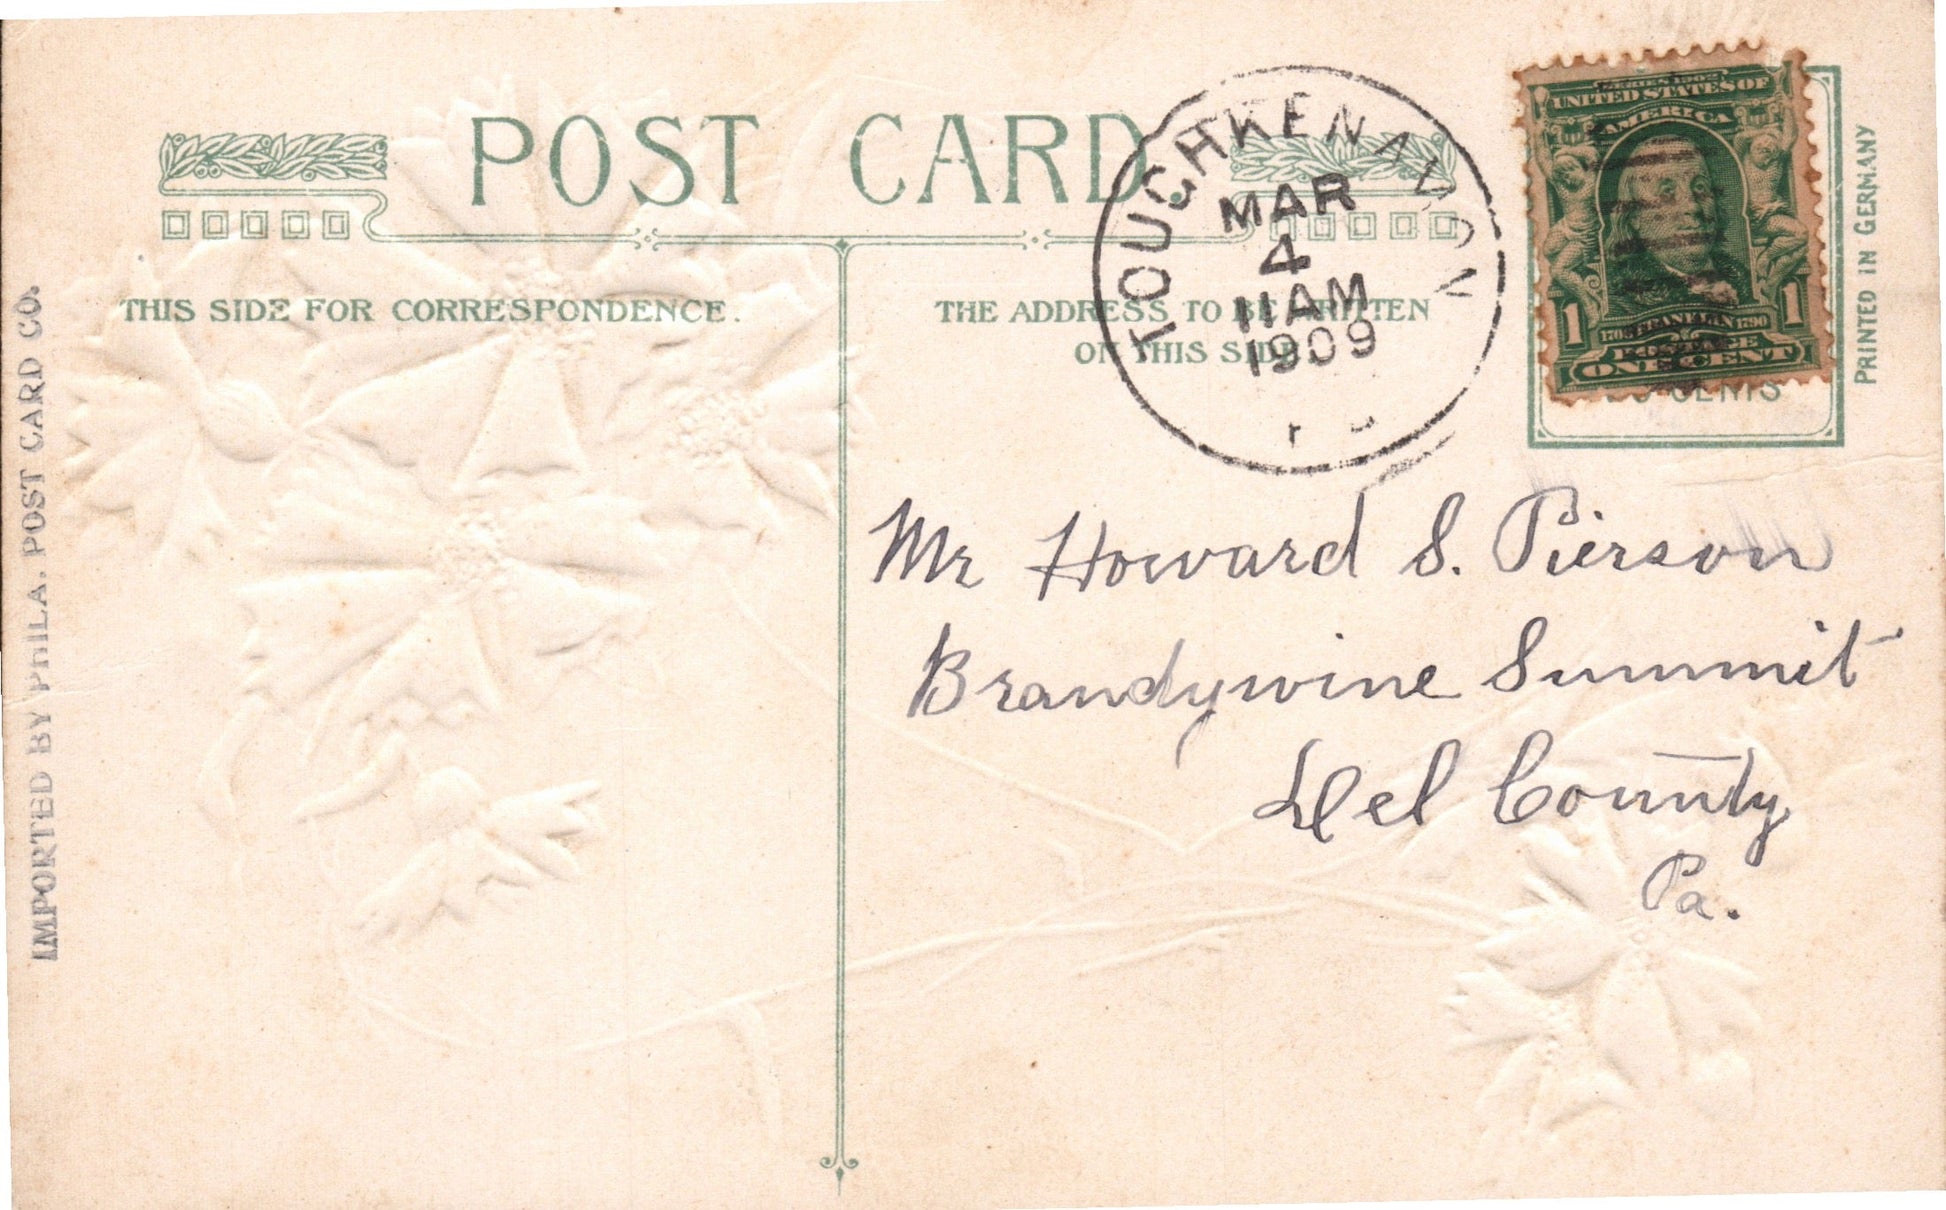 POST CARD
THIS SIDE FOR CORRESPONDENCE.
THE ADDRESS TO BE WRITTEN
ON THIS SIDE.
TOUGHKENAMON
MAR
4
11 AM
1909
SERIES 1902
UNITED STATES OF
AMERICA
1 1
1706 FRANKLIN 1790
POSTAGE
ONE CENT
CENTS
PRINTED IN GERMANY
IMPORTED BY PHILA. POST CARD CO.
Mr Howard S. Pierson
Brandywine Summit
Del County
Pa.